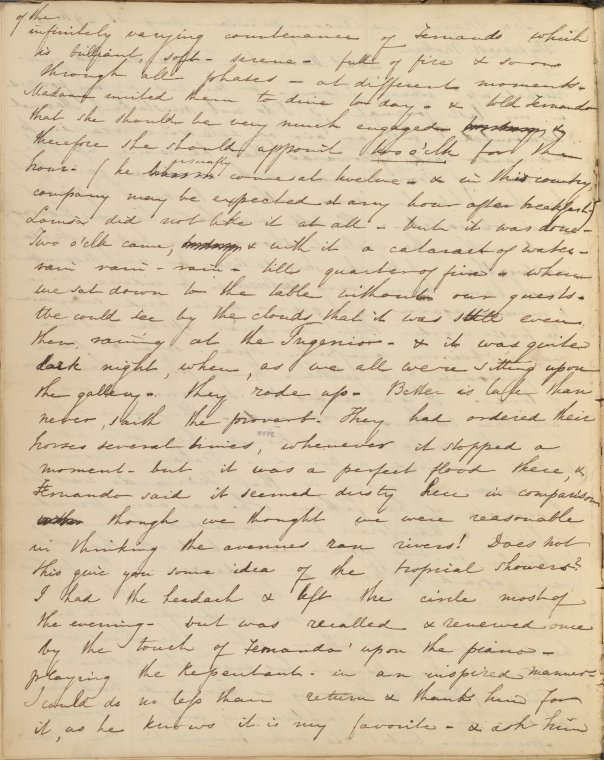 of the
infinitely varying countenance of Fernando which
is brilliant, soft - serene - full of fire & so on
through all phases - at different moments -
Madame invited them to dine to day - & told Fernando
that she should be very much engaged &
therefore she should appoint two o'clk for the
hour - (he usually comes at twelve - & in this country,
company may be expected at any hour after breakfast -
Louisa did not like it at all - but it was done -
Two o'clk came, & with it a cataract of water -
rain rain - rain - till quarter of five - when
we sat down to the table without our guests -
We could see by the clouds that it was still even
then, raining at the Ingenior - & it was quite
dark night, when, as we all were sitting upon
the gallery - they rode up - Better is late than
never, saith the proverb - They had ordered their
horses several times, whenever it stopped a
moment - but it was a perfect flood there, &
Fernando said it seemed dusty here in comparison
though we thought we were reasonable
in thinking the avenues ran rivers! Does not
this give you some idea of the tropical showers?
I had the headach & left the circle most of
the evening - but was recalled & renewed once
by the touch of Fernando' upon the piano -
playing the Repentant - in an inspired manner -
I could do no less than return & thank him for
it, as he knows it is my favorite - & ask him
NYPL